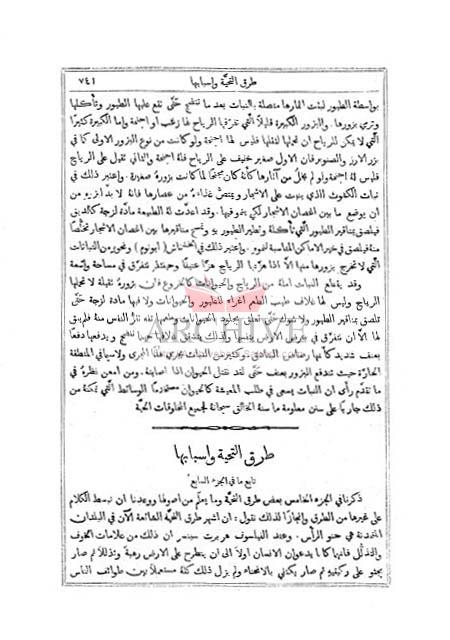 طرق التحية واسبابها ٧٤١
بواسطة الطيور لبثت اثمارها متصلة بالنبات بعد ما تنضج حتى تقع عليها الطيور وتأكلها
وترمي بزورها. والبزور الكبيرة قليلاً التي تفرقها الرياح لها زغب او اجنحة واما الكبيرة كثيرًا
التي لا يمكن للرياح ان تحملها لثقلها فليس لها اجنحة ولو كانت من نوع البزور الاولى كما في
بزر الارز والصنوبر فان الاول صغير خفيف على الرياح فلهُ اجنحة والثاني ثقيل على الرياح
فليس لهُ اجنحة ولو لم من آثارها كأنه كان مجنحًا لما كانت بزورهُ صغيرة. واعتبر ذلك في
نبات الذي ينبت على الاشجار ويمتص غذاءهُ من عصارها فانهُ لا بد لبزره من
ان يوضع ما بين اغصان الاشجار لكي ينمو فيها. وقد اعدّت لهُ الطبيعة مادة لزجة كالدبق
فيلصق بمناقير الطيور التي تأكله وتطير الطيور بهِ وتمسح مناقيرها بين اغصان الاشجار تخلصًا
منهُ فيلصق في خير الاماكن المناسبة لنموهِ. واعتبر ذلك في الخشخاش (ابو نوم) ونحوه من النباتات
التي لا تخرج بزورها منها الاّ اذا هزتها الرياح هزًّا عنيفًا وحينئذٍ تتفرق في مساحة واسعة
وقد النبات من الرياح والحيوانات كالخروع فان بزوره ثقيلة لا تحملها
الرياح وليس لها غلاف طيب الطعم اغراء للطيور والحيوانات ولا فيها مادة لزجة حتى
تلصق بمناقير الطيور ولا شوك حتى تعلق بجلود الحيوانات الناس منهُ فلم يبق
لها الاّ ان تتفرق في الارض بنفسها ولذلك حينما تنضج ويدفعها دفعًا
بعنف شديد كأنها رصاص البنادق. وكثير من النبات يجري هذا المجرى ولا سيما في المنطقة
الحارة حيث تندفع البزور بعنف حتى لقد تقتل الحيوان اذا اصابتهُ. ومن امعن نظرهُ في
ما تقدم رأى ان النبات يسعى في طلب المعيشة كالحيوان مستخدمًا الوسائط التي تمكنهُ من
ذلك جاريًا على سنن معلومة ما سنهُ الخالق سبحانهُ لجميع المخلوقات الحية
طرق التحية واسبابها
تابع ما في الجزء السابع
ذكرنا في الجزء الخامس بعض طرق التحية وما يعلم من اصولها ووعدنا ان نبسط الكلام
على غيرها من الطرق وانجازًا لذلك نقول: ان اشهر طرق التحية الشائعة الآن في البلدان
المتمدنة هي حنو الرأس. وعند الفيلسوف هربرت سبنسر ان ذلك من علامات الخوف
والتذلل فانهما كانا يدعوان الانسان اولاً الى ان ينطرح على الارض رهبة وتذللاً ثم صار
يجثو على ركبتيهِ ثم صار يكتفي بالانحناء ولم يزل ذلك كلهُ مستعملاً بين طوائف الناس
ARCHIVE